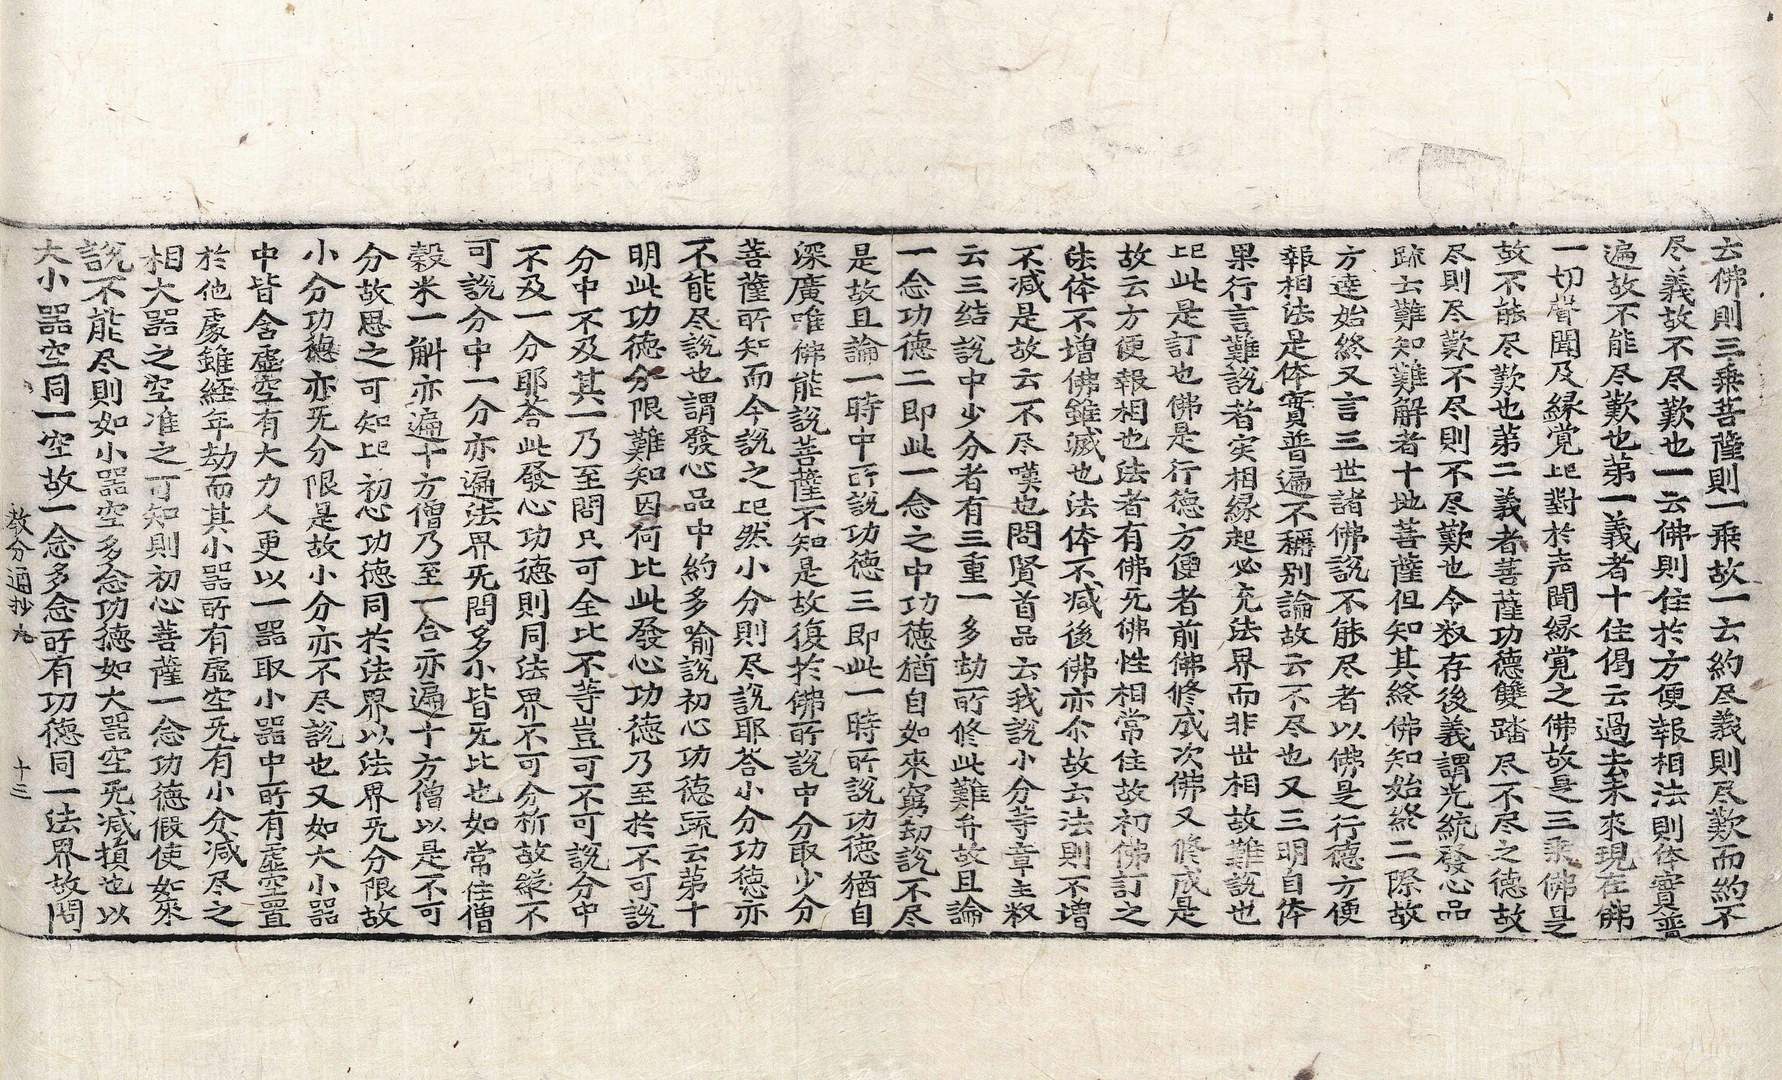 云佛則三乗菩薩則一乗故一云約尽義則尽歎而約不
尽義故不尽歎也一云佛則住於方便報相法則体實普
遍故不能尽歎也苐一義者十住偈云過去未來現在佛
一切聲聞及縁覚此對於声聞縁覚之佛故是三乗佛是
䟽云難知難解者十地菩薩但知其終佛知始終二際故
故不能尽歎也苐二義者菩薩功德雙踏尽不尽之德故
尽則尽歎不尽則不尽歎也今叙存後義謂光統發心品
方達始終又言三世諸佛說不能尽者以佛是行德方便
報相法是体實普遍不稱别論故云不尽也又三明自体
果行言難說者实相縁起必充法界而非世相故難說也
此此是訂也佛是行德方便者前佛修成次佛又修成是
故云方便報相也法者有佛旡佛性相常住故初佛訂之
法体不增佛雖滅也法体不减後佛亦尒故云法則不增
不减是故云不尽嘆也問賢首品云我說小分等章主叙
云三结說中少分者有三重一多劫所修此難弁故且論
一念功德二即此一念之中功德猶自如來窮劫說不尽
是故且論一時中所說功德三即此一時所說功德猶自
深廣唯佛能說菩薩不知是故復於佛所說中分取少分
菩薩所知而今說之此然小分則尽說耶荅小分功德亦
不能尽說也謂發心品中約多喻說初心功德䟽云苐十
明此功德分限難知因何比此發心功德乃至於不可說
分中不及其一乃至問只可全比不等豈可不可說分中
不及一分耶荅此發心功德則同法界不可分析故縱不
可說分中一分亦遍法界旡問多小皆旡比也如常住僧
穀米一斛亦遍十方僧乃至一合亦遍十方僧以是不可
分故思之可知此初心功德同於法界以法界旡分限故
小分功德亦旡分限是故小分亦不尽說也又如大小器
中皆含虛空有大力人更以一器取小器中所有虛空置
於他處雖経年劫而其小器所有虛空旡有小分减尽之
相大器之空准之可知則初心菩薩一念功德假使如來
說不能尽則如小器空多念功德如大器空旡减損也以
大小器空同一空故一念多念所有功德同一法界故問
教分通抄九　十三